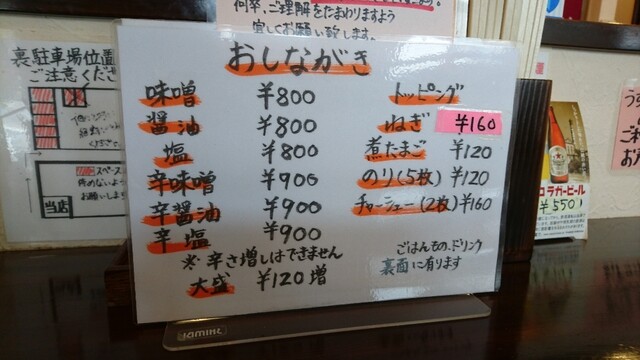 何卒、ご理解をたまわりますよう
宜しくお願い致します。
おしながき
味噌 ¥800
醤油 ¥800
塩 ¥800
辛味噌 ¥900
辛醤油 ¥900
辛塩 ¥900
※辛さ増しはできません
大盛 ¥120増
トッピング
ねぎ ¥160
煮たまご ¥120
のり(5枚) ¥120
チャーシュー(2枚) ¥160
ごはんもの、ドリンク
裏面に有ります
jamint
裏駐車場位置
ご注意くださ
スペース
停めないよう
お願いします
当店
コラガービール
¥550